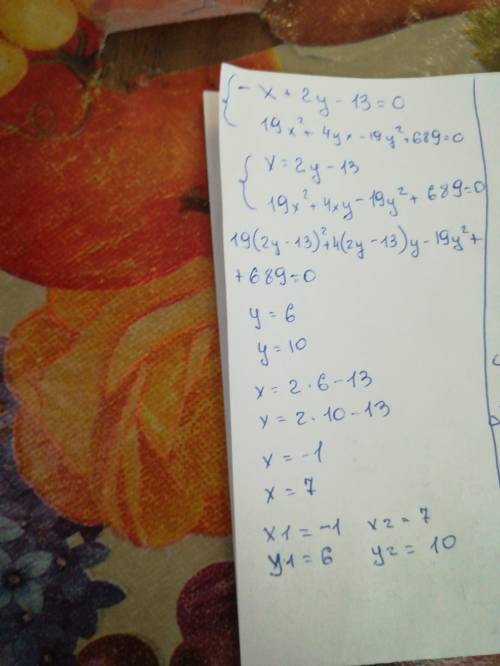 { - x + 2y - 13 = 0
19x² + 4yx - 19y² + 689 = 0
{ x = 2y - 13
19x² + 4xy - 19y² + 689 = 0
19(2y - 13)² + 4(2y - 13)y - 19y² +
+ 689 = 0
y = 6
y = 10
x = 2 · 6 - 13
x = 2 · 10 - 13
x = -1
x = 7
x1 = -1 x2 = 7
y1 = 6 y2 = 10